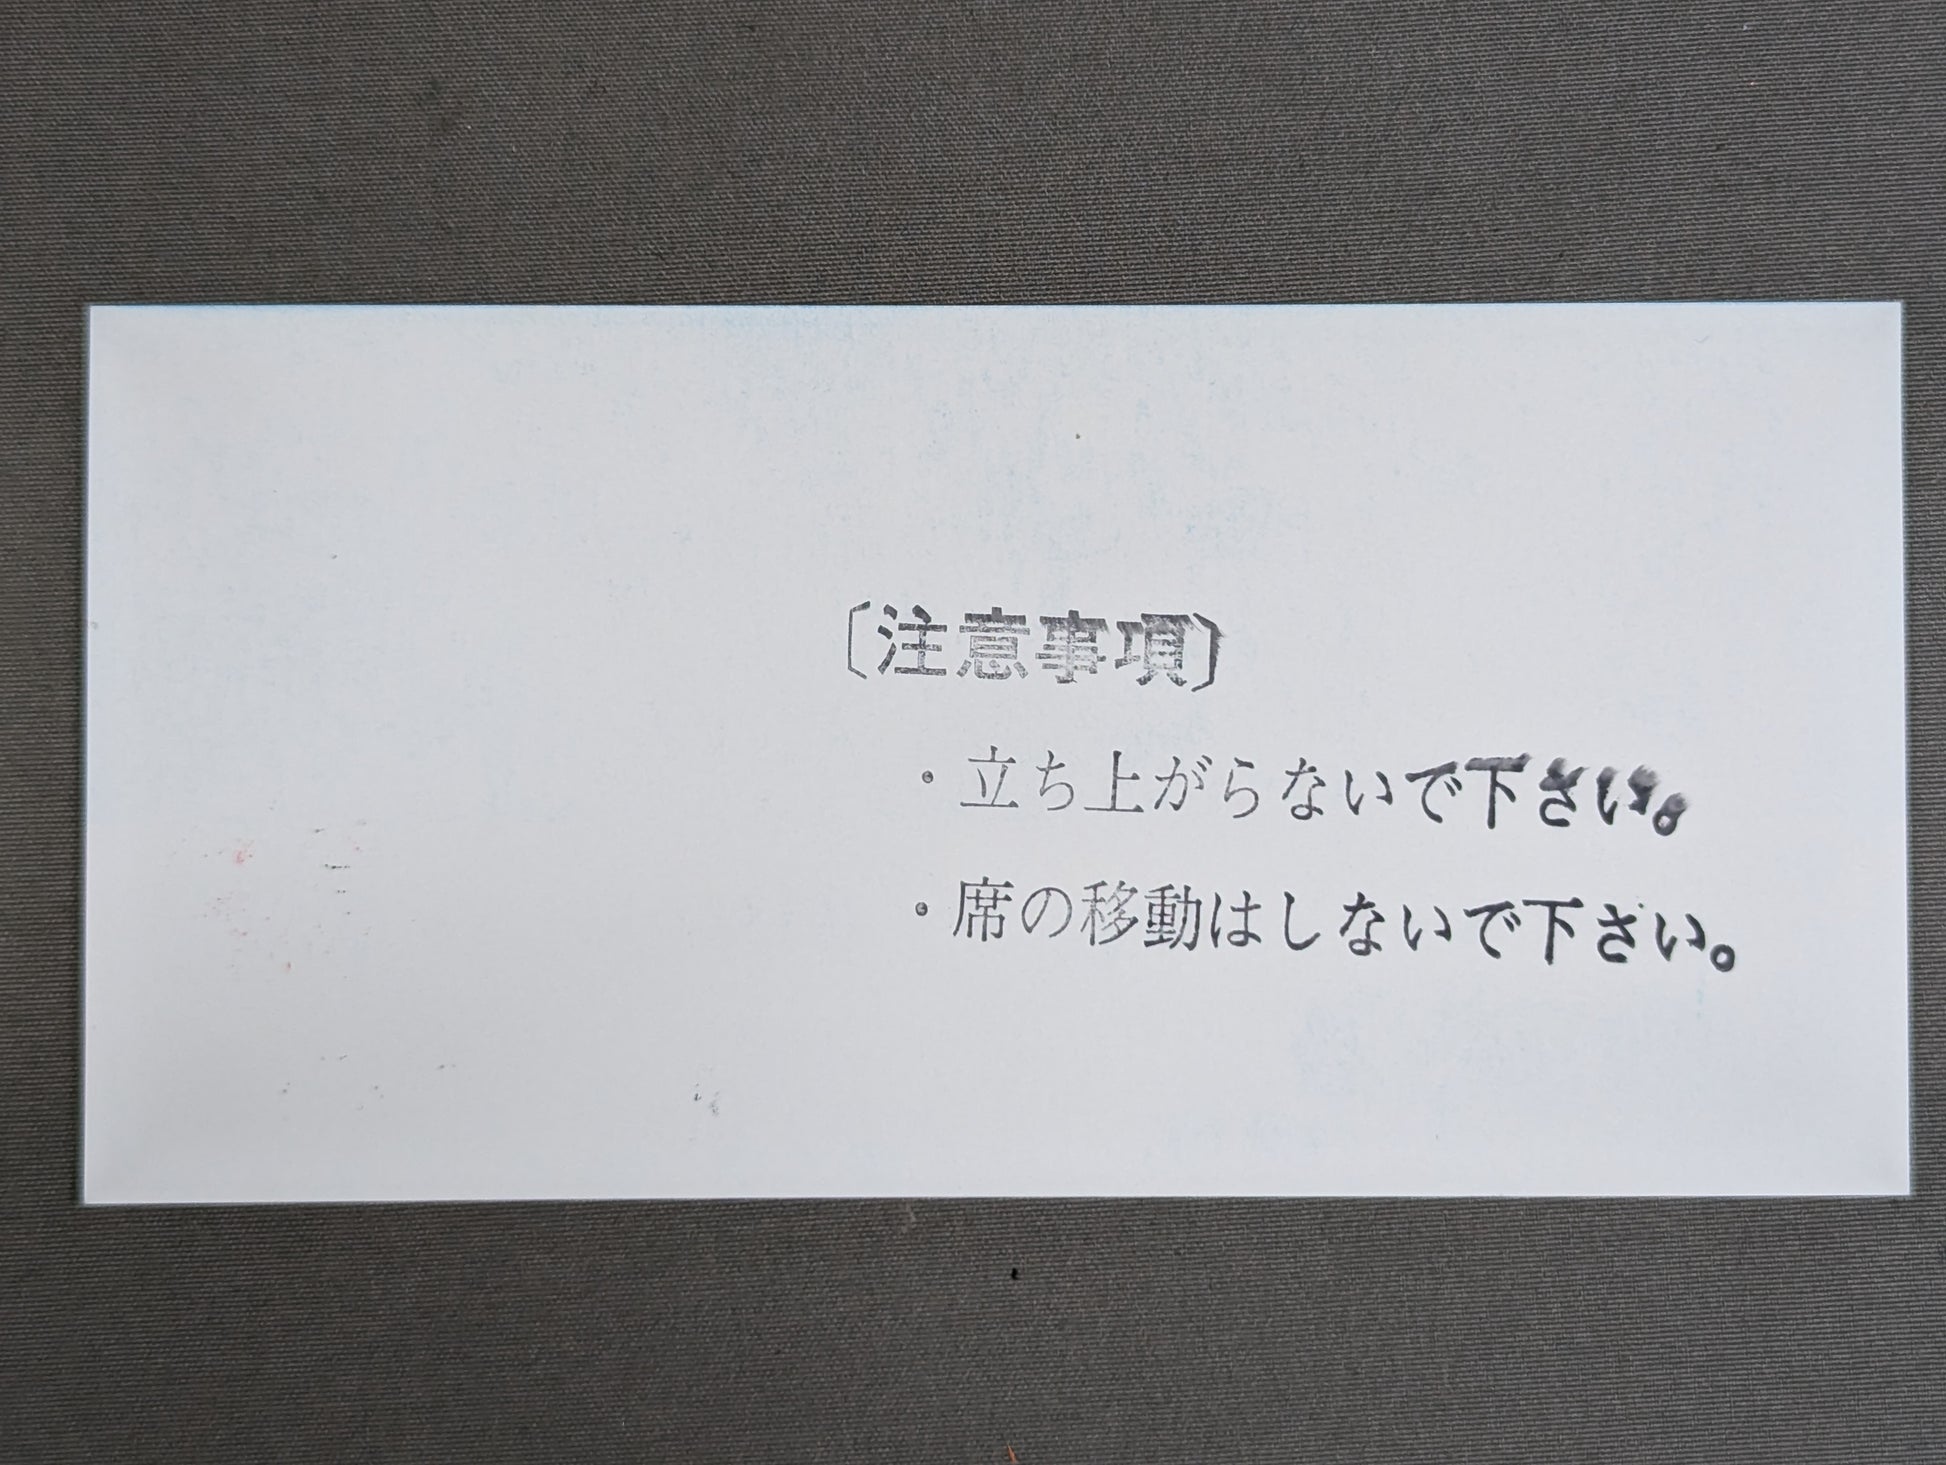 〔注意事項〕
・立ち上がらないで下さい。
・席の移動はしないで下さい。